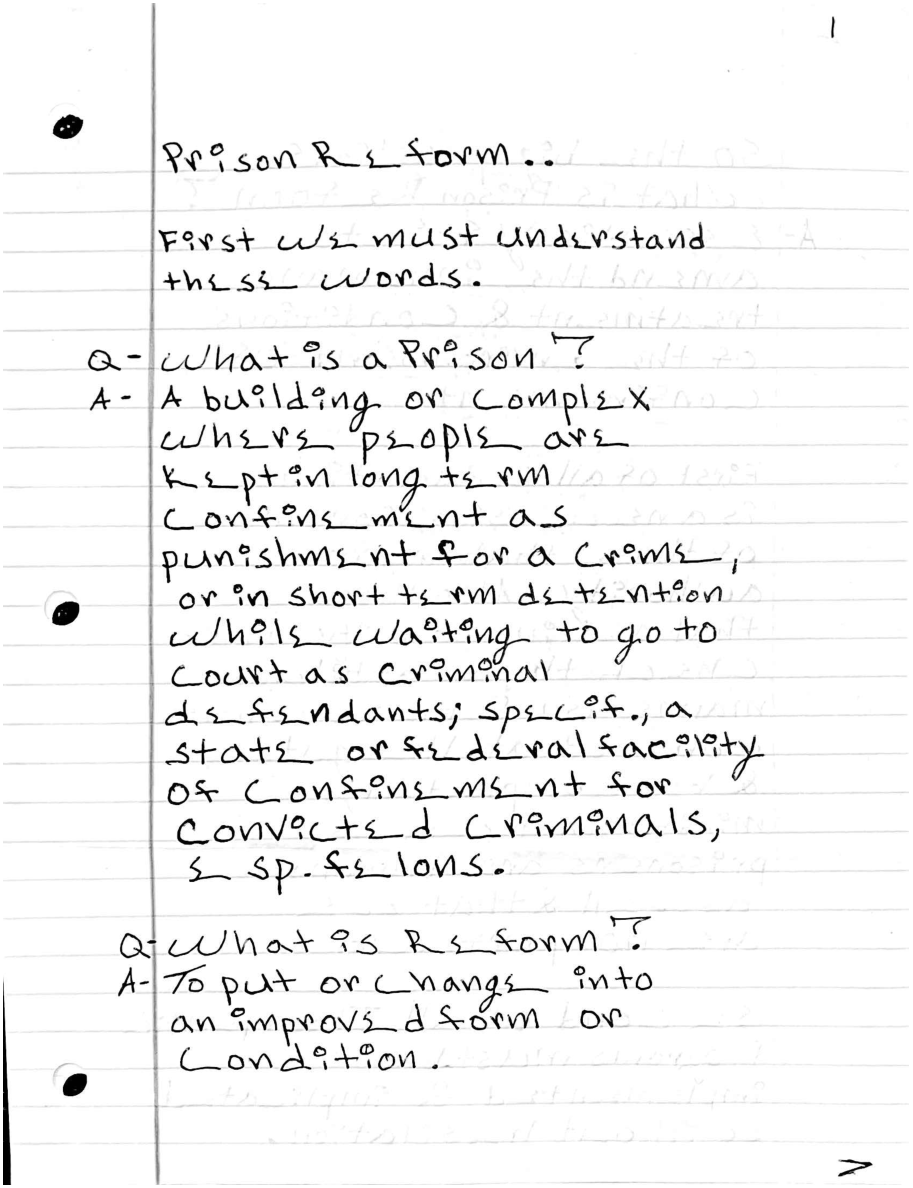 1
Prison Reform..
First we must understand
these words.
Q- What is a Prison?
A- A building or complex
where people are
kept in long term
confinement as
punishment for a crime,
or in short term detention
while waiting to go to
court as criminal
defendants; specif., a
state or federal facility
of confinement for
convicted criminals,
esp. felons.
Q- What is Reform?
A- To put or change into
an improved form or
condition.
>